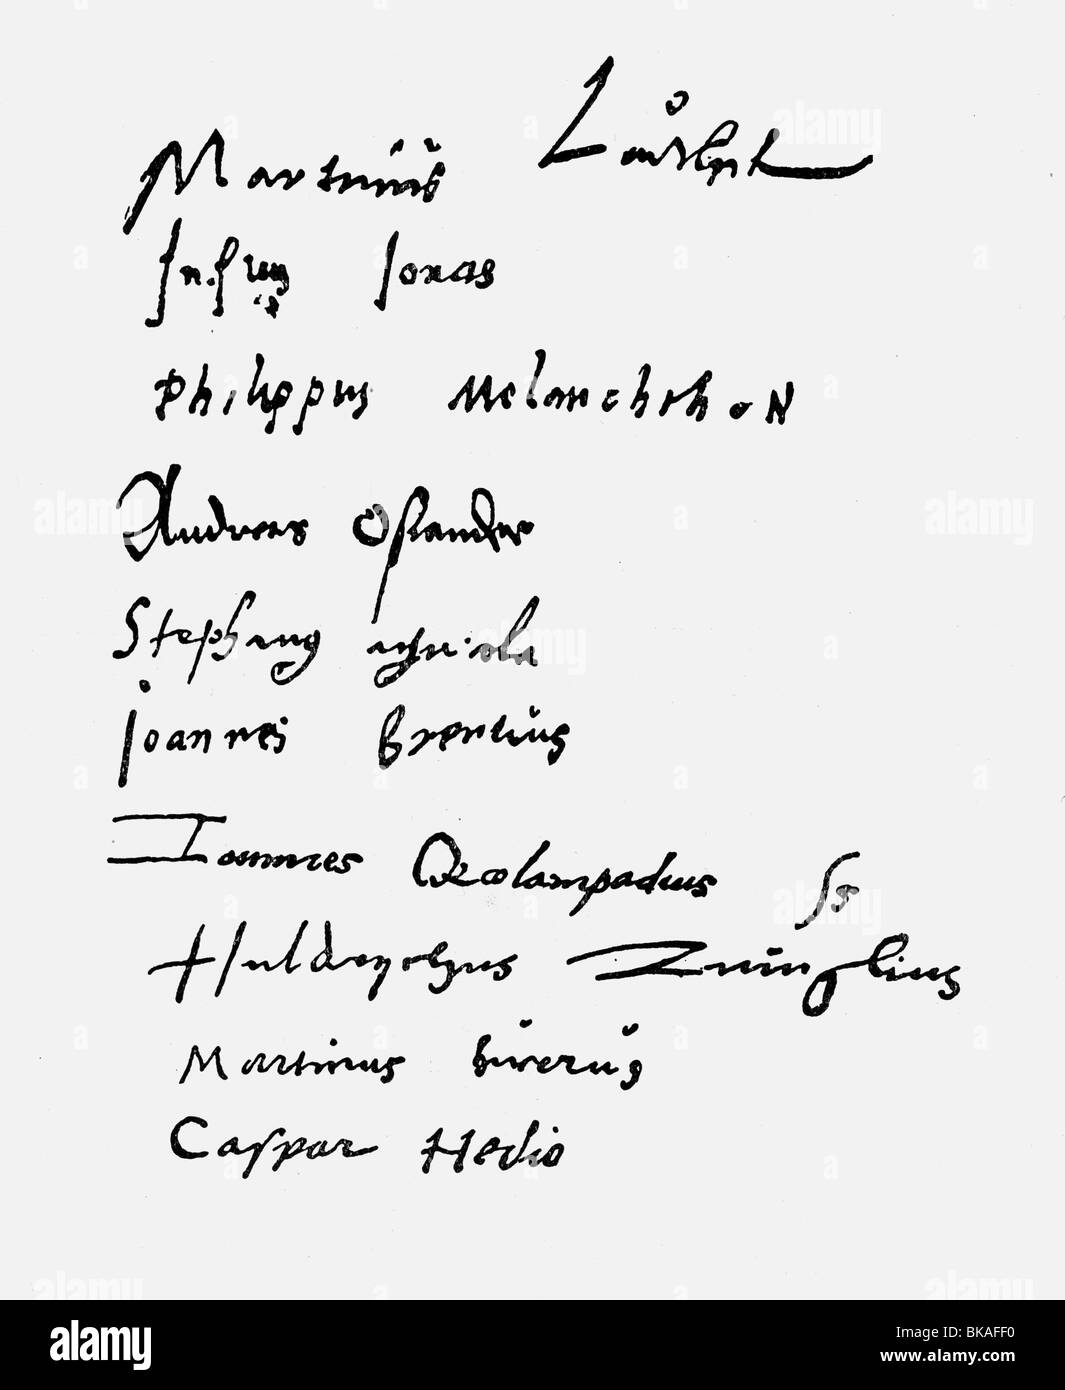 Martinus Luther
Justus Jonas
Philippus Melanchthon
Andreas Osiander
Stephanus Agricola
Joannes Brentius
Ioannes Oecolampadius ss
Huldrychus Zuinglius
Martinus Bucerus
Caspar Hedio
alamy
Image ID: BKAFF0
www.alamy.com